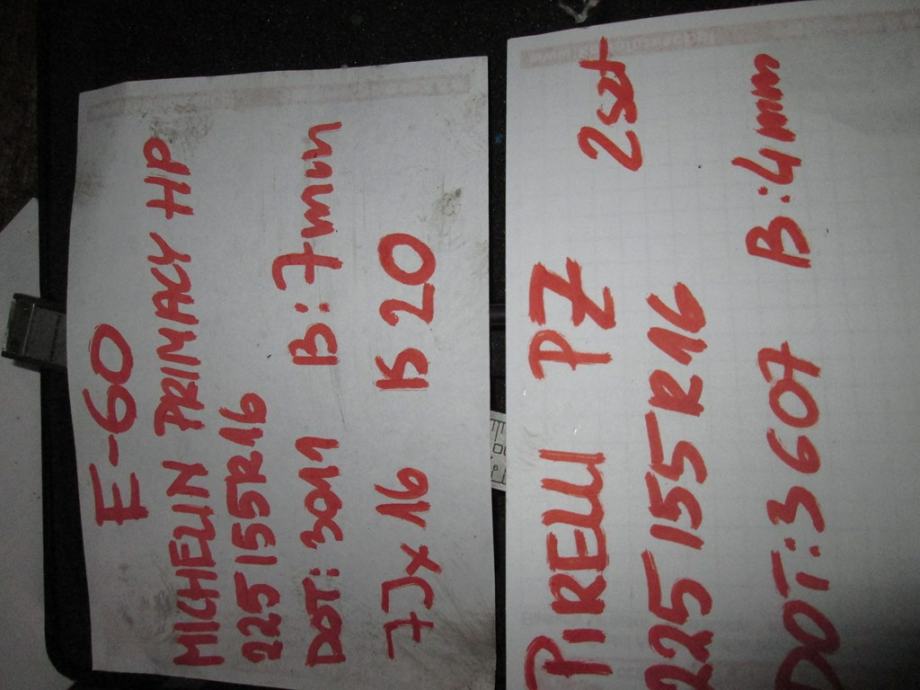 E-60
MICHELIN PRIMACY HP
225/55R16
DOT: 3011 B: 7mm
7Jx16 IS 20
PIRELLI P7 2szt
225/55R16
DOT: 3607 B: 4mm